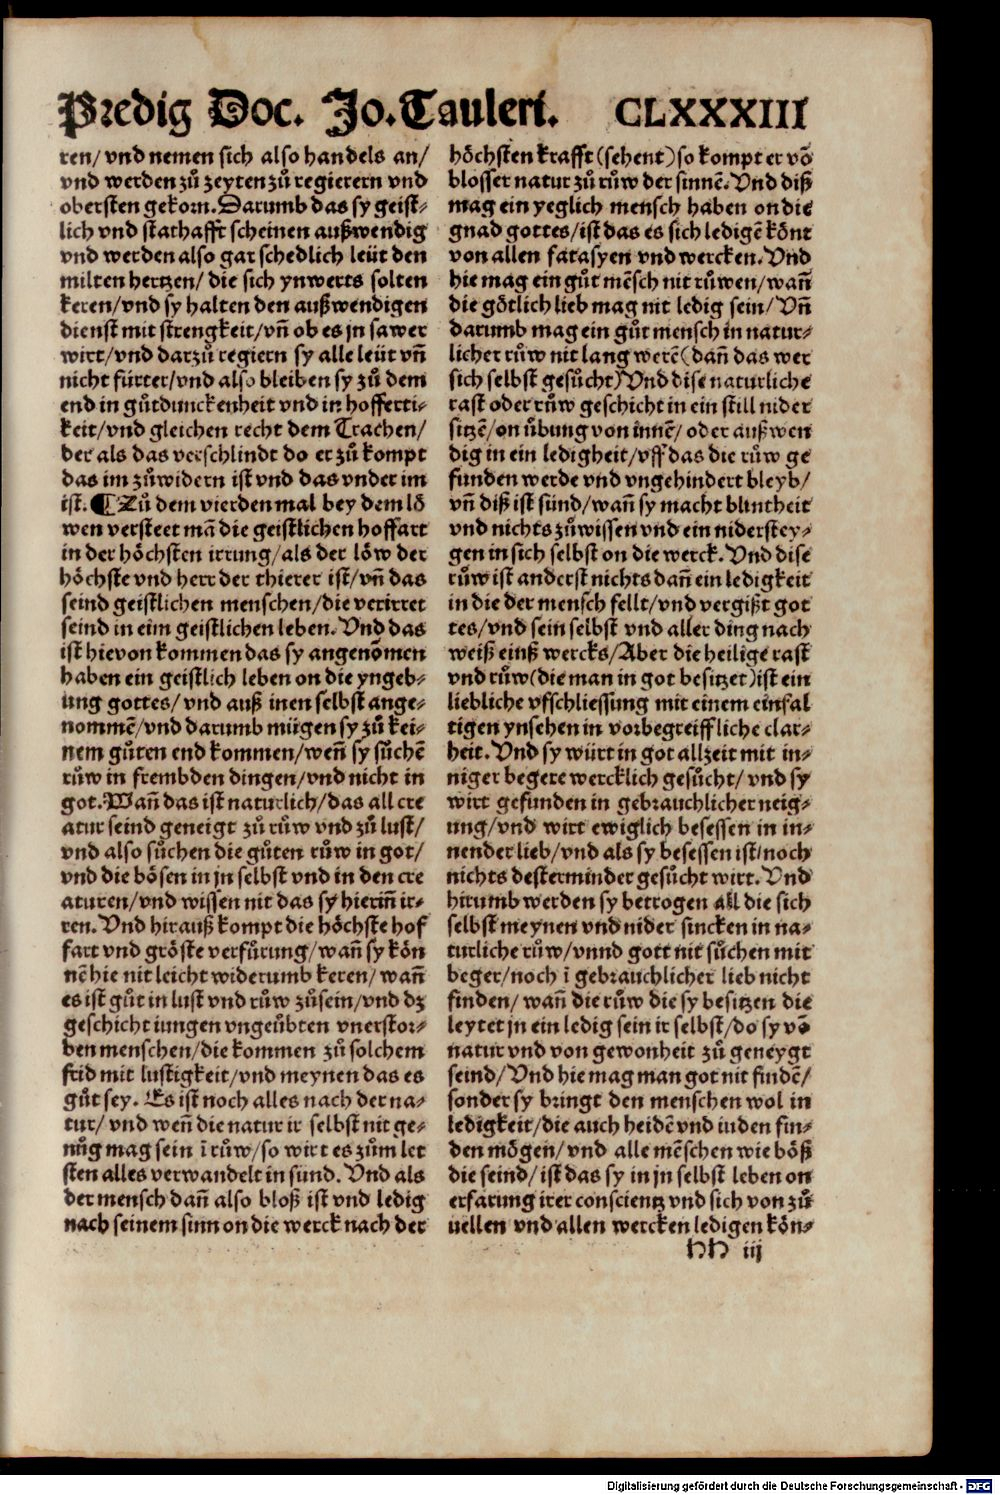 Predig Doc. Jo. Tauleri. CLXXXIII
ren/ vnd nemen sich also handels an/
vnd werden zů zeyten zů regierern vnd
obersten gekorn. Darumb das sy geist⸗
lich vnd stathafft scheinen außwendig
vnd werden also gar schedlich leüt den
milten hertzen/ die sich ynwerts solten
keren/ vnd sy halten den außwendigen
dienst mit strengkeit/ vñ ob es jn sawer
wirt/ vnd darzů regiern sy alle leüt vñ
nicht fürter/ vnd also bleiben sy zů dem
end in gůtdunckenheit vnd in hofferti⸗
keit/ vnd gleichen recht dem Trachen/
der als das verschlindt do er zů kompt
das im zůwidern ist vnd das vnder im
ist. ¶ Zů dem vierden mal bey dem lö
wen versteet mā die geistlichen hoffart
in der höchsten irrung/ als der löw der
höchste vnd herr der thierer ist/ vñ das
seind geistlichen menschen/ die verirret
seind in eim geistlichen leben. Vnd das
ist hievon kommen das sy angenōmen
haben ein geistlich leben on die yngeb⸗
ung gottes/ vnd auß inen selbst ange⸗
nommē/ vnd darumb mügen sy zů kei⸗
nem gůten end kommen/ weñ sy sůchē
růw in frembden dingen/ vnd nicht in
got. Wañ das ist naturlich/ das all cre
atur seind geneigt zů růw vnd zů lust/
vnd also sůchen die gůten růw in got/
vnd die bösen in jn selbst vnd in den cre
aturen/ vnd wissen nit das sy hieriñ ir⸗
ren. Vnd hirauß kompt die höchste hof
fart vnd gröste verfürung/ wañ sy kön
nē hie nit leicht widerumb keren/ wañ
es ist gůt in lust vnd růw zůsein/ vnd dz
geschicht iungen vngeübten vnerstor⸗
ben menschen/ die kommen zů solchem
frid mit lustigkeit/ vnd meynen das es
gůt sey. Es ist noch alles nach der na⸗
tur/ vnd weñ die natur ir selbst nit ge⸗
nůg mag sein ī růw/ so wirt es zům let
sten alles verwandelt in sund. Vnd als
der mensch dañ also bloß ist vnd ledig
nach seinem sinn on die werck nach der
höchsten krafft (sehent) so kompt er vō
blosser natur zů růw der sinnē. Vnd diß
mag ein yeglich mensch haben on die
gnad gottes/ ist das es sich ledigē könt
von allen fatasyen vnd wercken. Vnd
hie mag ein gůt mēsch nit růwen/ wañ
die götlich lieb mag nit ledig sein/ Vñ
darumb mag ein gůt mensch in natur⸗
licher růw nit lang werē (dañ das wer
sich selbst gesůcht) Vnd dise naturliche
rast oder růw geschicht in ein still nider
sitzē/ on übung von innē/ oder außwen
dig in ein ledigheit/ vff das die růw ge
funden werde vnd vngehindert bleyb/
vñ diß ist sünd/ wañ sy macht blintheit
vnd nichts zůwissen vnd ein niderstey⸗
gen in sich selbst on die werck. Vnd dise
růw ist anderst nichts dañ ein ledigkeit
in die der mensch fellt/ vnd vergißt got
tes/ vnd sein selbst vnd aller ding nach
weiß einß wercks/ Aber die heilige rast
vnd růw (die man in got besitzet) ist ein
liebliche vfschliessung mit einem einfal
tigen ynsehen in vorbegreiffliche clar⸗
heit. Vnd sy würt in got allzeit mit in⸗
niger begere wercklich gesůcht/ vnd sy
wirt gefunden in gebrauchlicher neig⸗
ung/ vnd wirt ewiglich besessen in in⸗
nender lieb/ vnd als sy besessen ist/ noch
nichts desterminder gesůcht wirt. Vnd
hirumb werden sy betrogen all die sich
selbst meynen vnd nider sincken in na⸗
turliche růw/ vnnd gott nit sůchen mit
beger/ noch ī gebrauchlicher lieb nicht
finden/ wañ die růw die sy besitzen die
leytet jn ein ledig sein ir selbst/ do sy vō
natur vnd von gewonheit zů geneygt
seind/ Vnd hie mag man got nit findē/
sonder sy bringt den menschen wol in
ledigkeit/ die auch heidē vnd iuden fin⸗
den mögen/ vnd alle mēschen wie böß
die seind/ ist das sy in jn selbst leben on
erfarung irer conscientz vnd sich von zů
uellen vnd allen wercken ledigen kön⸗
HH iij
Digitalisierung gefördert durch die Deutsche Forschungsgemeinschaft - DFG